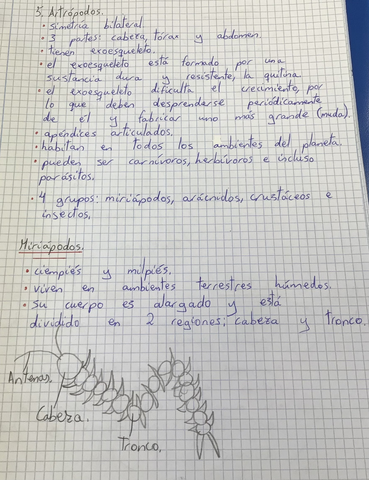 5. Artrópodos.
• Simetría bilateral.
• 3 partes: cabeza, tórax y abdomen.
• tienen exoesqueleto.
• el exoesqueleto está formado por una
sustancia dura y resistente, la quitina
• el exoesqueleto dificulta el crecimiento, por
lo que deben desprenderse periódicamente
de él y fabricar uno más grande (muda).
• apéndices articulados.
• habitan en todos los ambientes del planeta.
• pueden ser carnívoros, herbívoros e incluso
parásitos.
• 4 grupos: miriápodos, arácnidos, crustáceos e
insectos.
Miriápodos.
• ciempiés y milpiés.
• viven en ambientes terrestres húmedos.
• su cuerpo es alargado y está
dividido en 2 regiones; cabeza y tronco.
Antenas.
Cabeza.
Tronco.